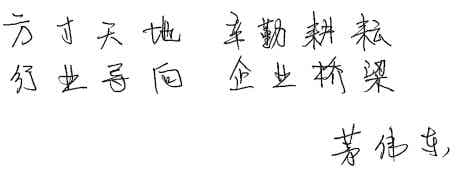 方寸天地 辛勤耕耘
行业导向 企业桥梁
茅伟东